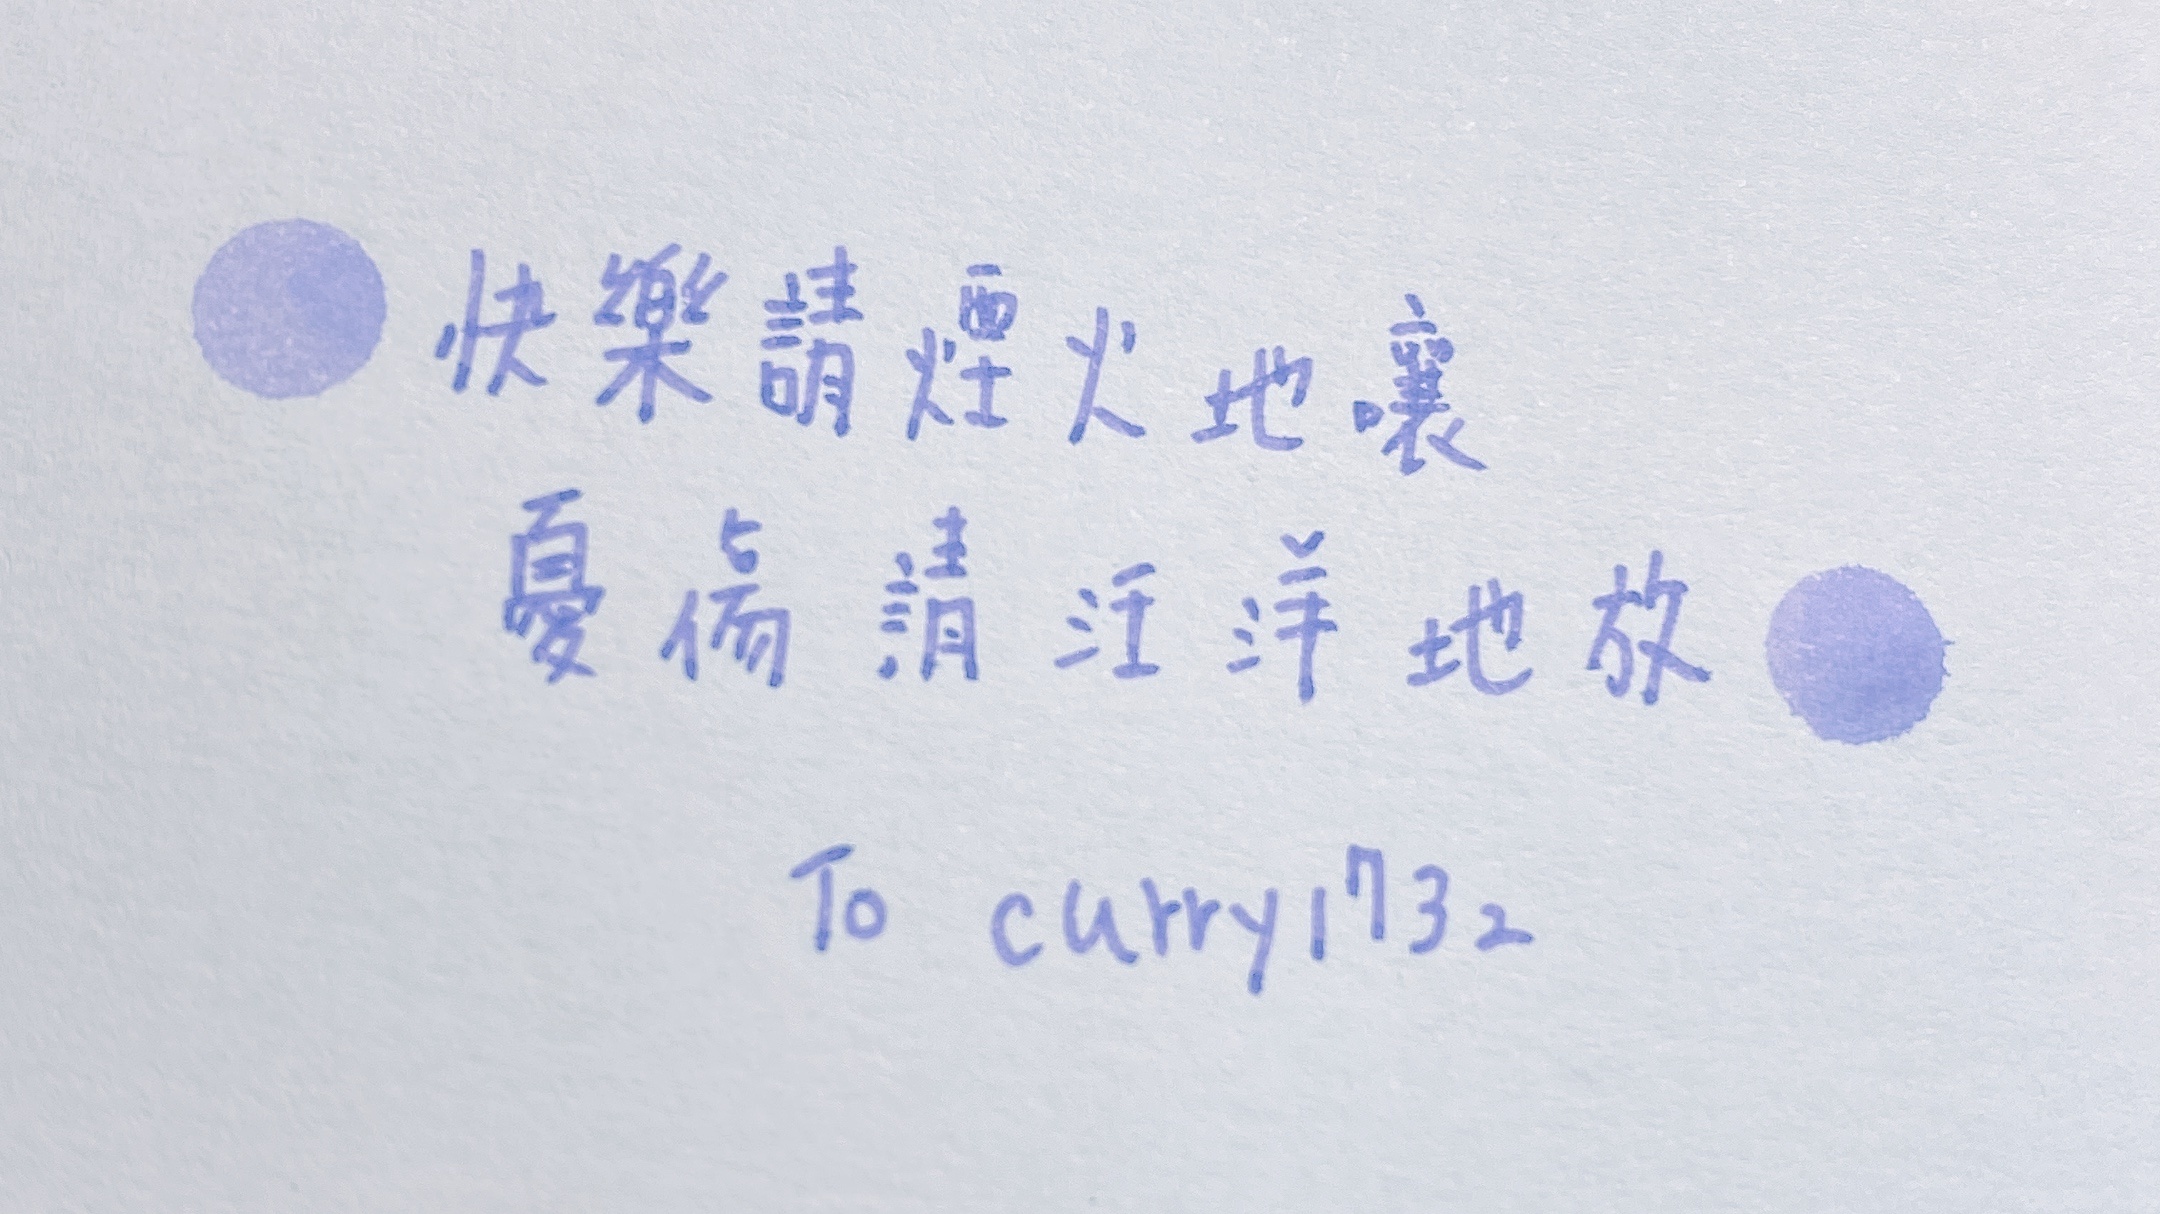 快樂請煙火地嚷
憂傷請汪洋地放
To curry1732